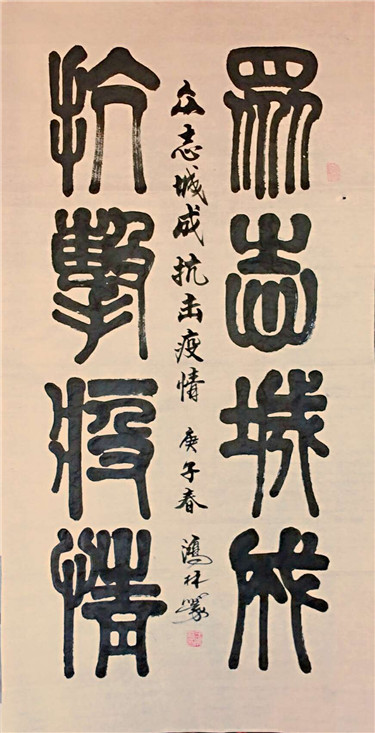 眾志城成
众志城成抗击疫情 庚子春 鸿林篆
抗擊疫情